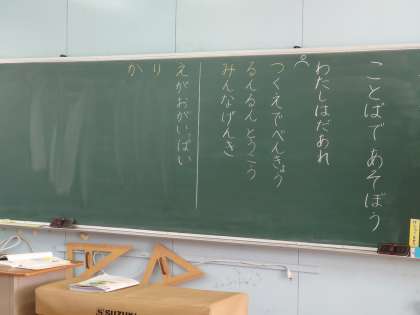 ことばであそぼう
わたしはだあれ
つくえでべんきょう
るんるんとうこう
みんなげんき
えがおがいっぱい
り
か